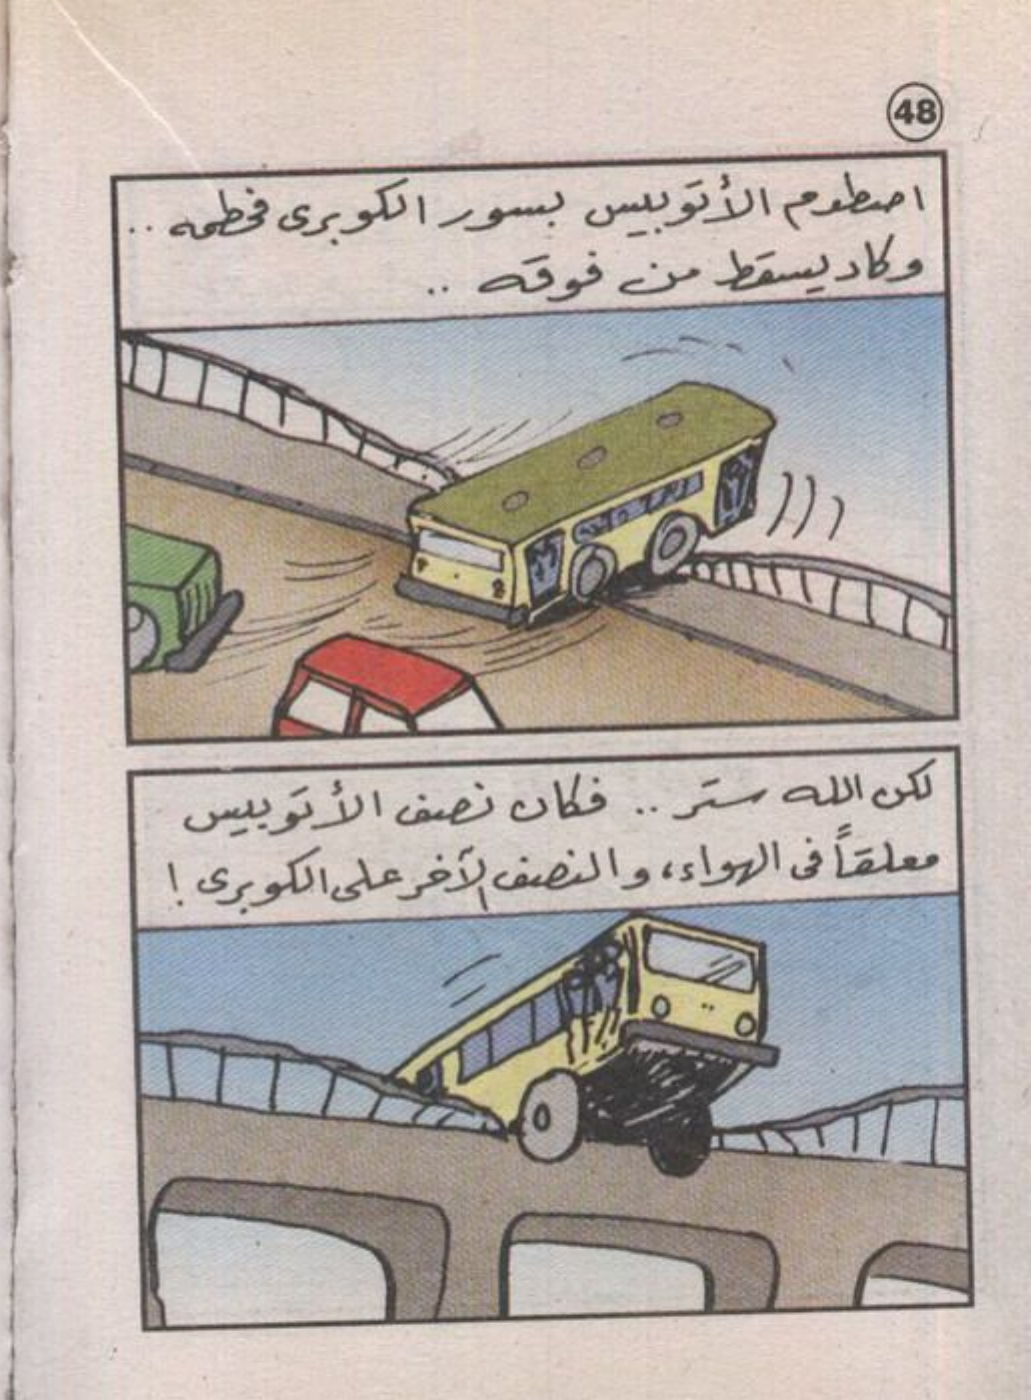 48
اصطدم الأتوبيس بسور الكوبرى فحطمه ..
وكاد يسقط من فوقه ..
لكن الله ستر .. فكان نصف الأتوبيس
معلقاً فى الهواء، والنصف الآخر على الكوبرى !